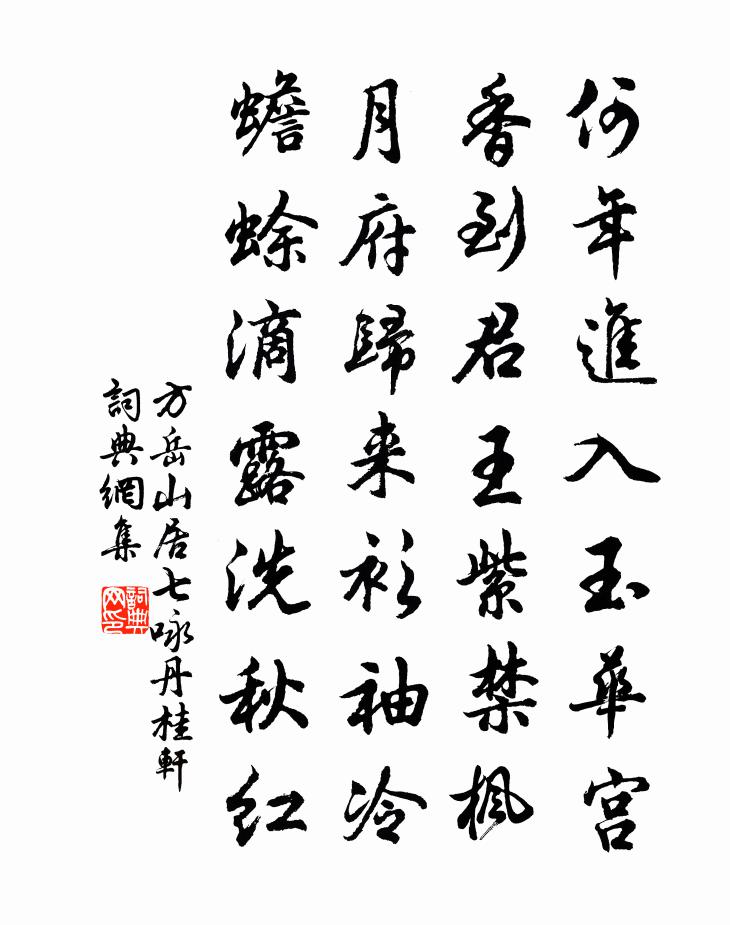 何年進入玉華宮
香到君王紫禁楓
月府歸来衫袖冷
蟾蜍滴露洗秋红
方岳山居七咏丹桂軒
詞典網集
詞典网印